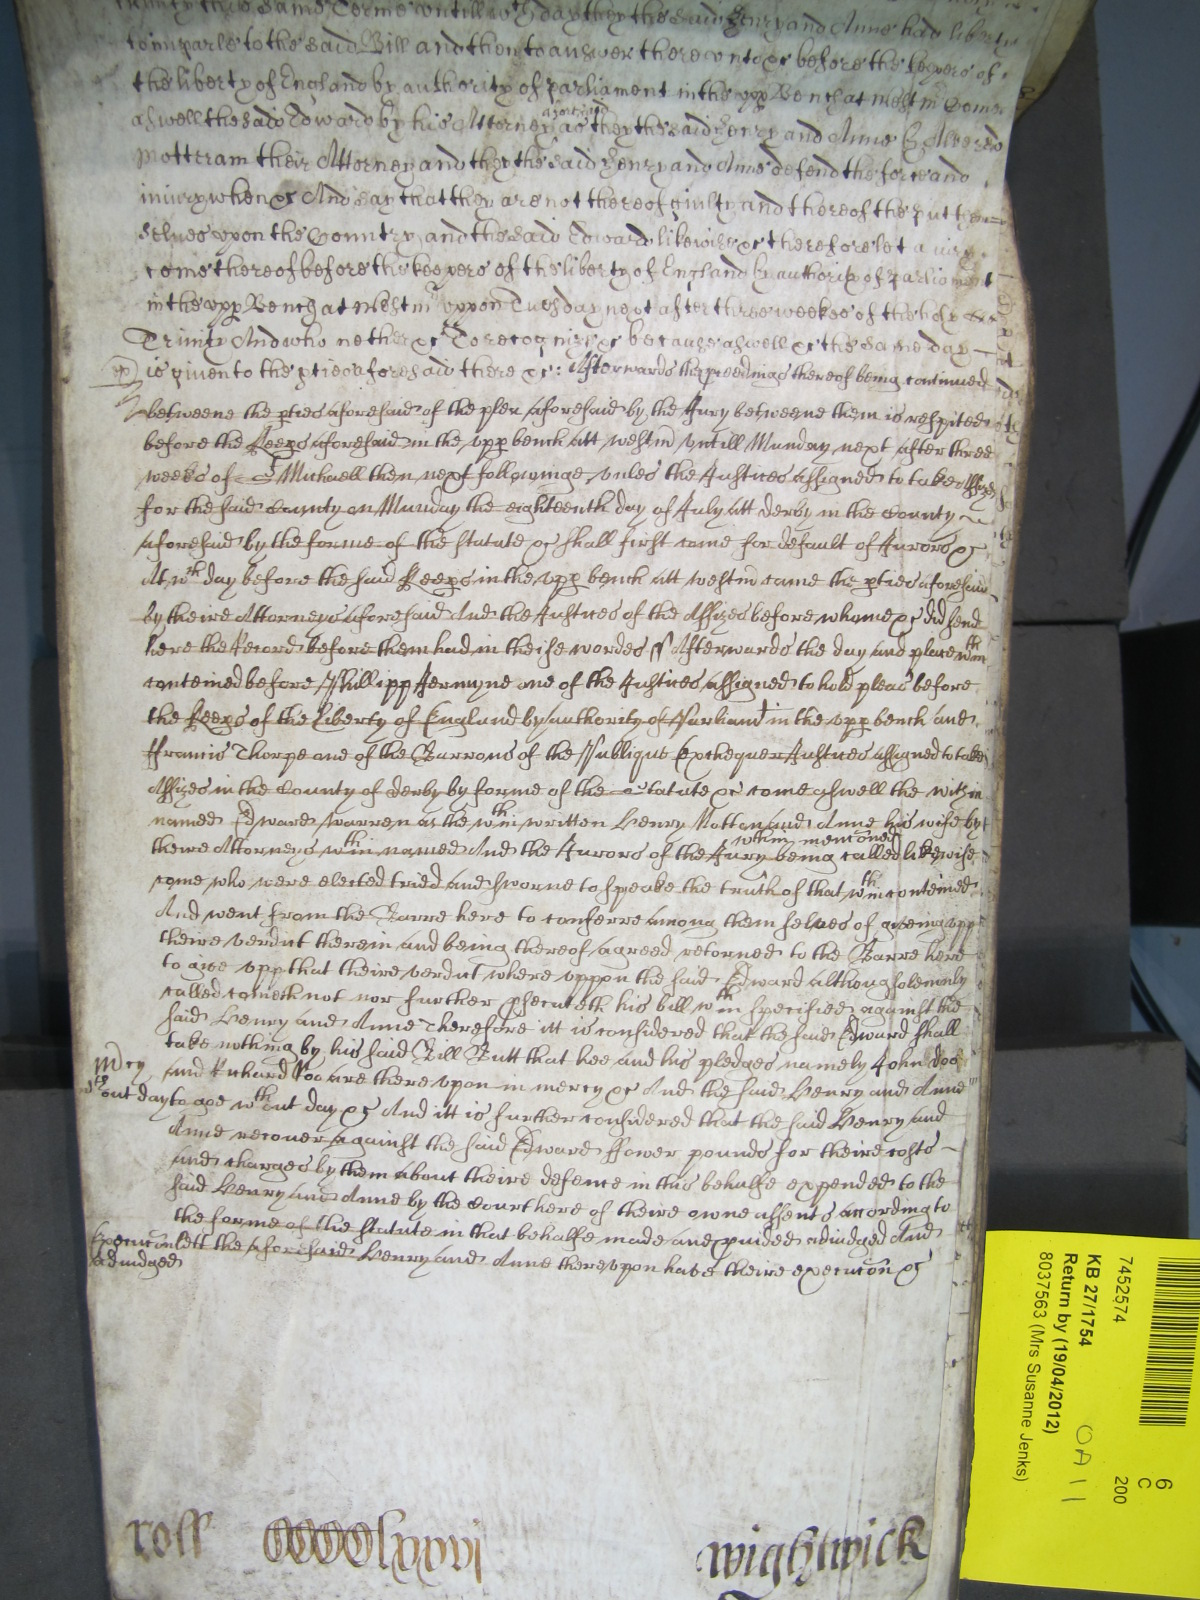 Trinity this same Terme untill wch day they the said Henry and Anne had liberty
to imparle to the said Bill and then to answer thereunto &c before the keepers of
the liberty of England by authority of parliament in the upp Bench at Westm Come
aswell the said Edward by his Attorney aforesaid as they the said Henry and Anne by
Motteram their Attorney and they the said Henry and Anne defend the force and
iniury when &c And say that they are not thereof guilty and thereof the put them
selves upon the Countrey and the said Edward likewise &c therefore let a iury
come thereof before the keepers of the liberty of England by authority of parliament
in the upp Bench at Westm uppon Tuesday next after three weekes of the holy
Trinity And who nether &c To recognize &c because aswell &c the same day
is given to the pties aforesaid there &c: Afterwards the pceedings thereof being continued
betweene the pties aforesaid of the plea aforesaid by the Jury betweene them is respited
before the Keeps aforesaid in the upp bench att westm untill Munday next after three
weeks of St Michaell then next followinge unles the Justices assigned to take Assizes
for the said County on Munday the eighteenth day of July att Derby in the County
aforesaid by the forme of the statute &c shall first come for default of Jurors &c
At wch day before the said Keeps in the upp bench att westm came the pties aforesaid
by theire Attorneys aforesaid And the Justices of the Assizes before whome &c did send
here the Record before them had in theise wordes ss Afterwards the day and place wthin
conteined before Phillipp Jermyne one of the Justices assigned to hold pleas before
the Keeps of the Liberty of England by authority of Parliamt in the upp bench and
ffrancis Thorpe one of the Barrons of the Publique Exchequer Justices assigned to take
Assizes in the County of Derby by forme of the statute &c come aswell the within
named Edward Warren as the wthin written Henry Notton and Anne his wife by
theire Attorneys wthin named And the Jurors of the Jury wthin mencioned being called likewise
come who were elected tried and sworne to speake the truth of that wthin conteined
And went from the Barre here to conferre among them selves of giveing upp
theire verdict therein and being thereof agreed retorned to the Barre here
to give upp that theire verdict where uppon the said Edward although solemnly
called cometh not nor further psecuteth his bill wthin specified against the
said Henry and Anne Therefore itt is considered that the said Edward shall
take nothing by his said Bill Butt that hee and his pledges namely John Doe
Mcy and Richard Roo are there upon in mercy &c And the said Henry and Anne
wthout day to goe wthout day &c And itt is further considered that the said Henry and
Anne recover against the said Edward ffower pounds for theire costs
and charges by them about theire defence in this behalfe expended to the
said Henry and Anne by the Court here of theire owne assents according to
the forme of the statute in that behalfe made and pvided adiudged And
Execucon lett the aforesaid Henry and Anne thereupon have theire execucon &c
adiudged
roll CCCClxxvi wightwick
7452574
KB 27/1754
Return by (19/04/2012)
8037563 (Mrs Susanne Jenks)
6
C
200
OA 11